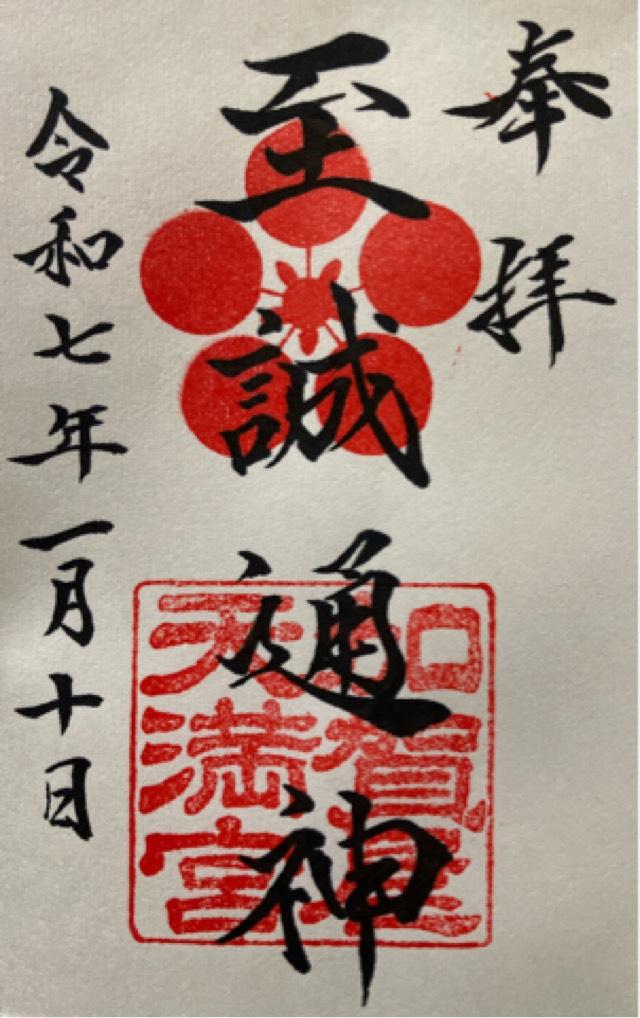 奉拝
至誠通神
加賀美
天満宮
令和七年一月十日